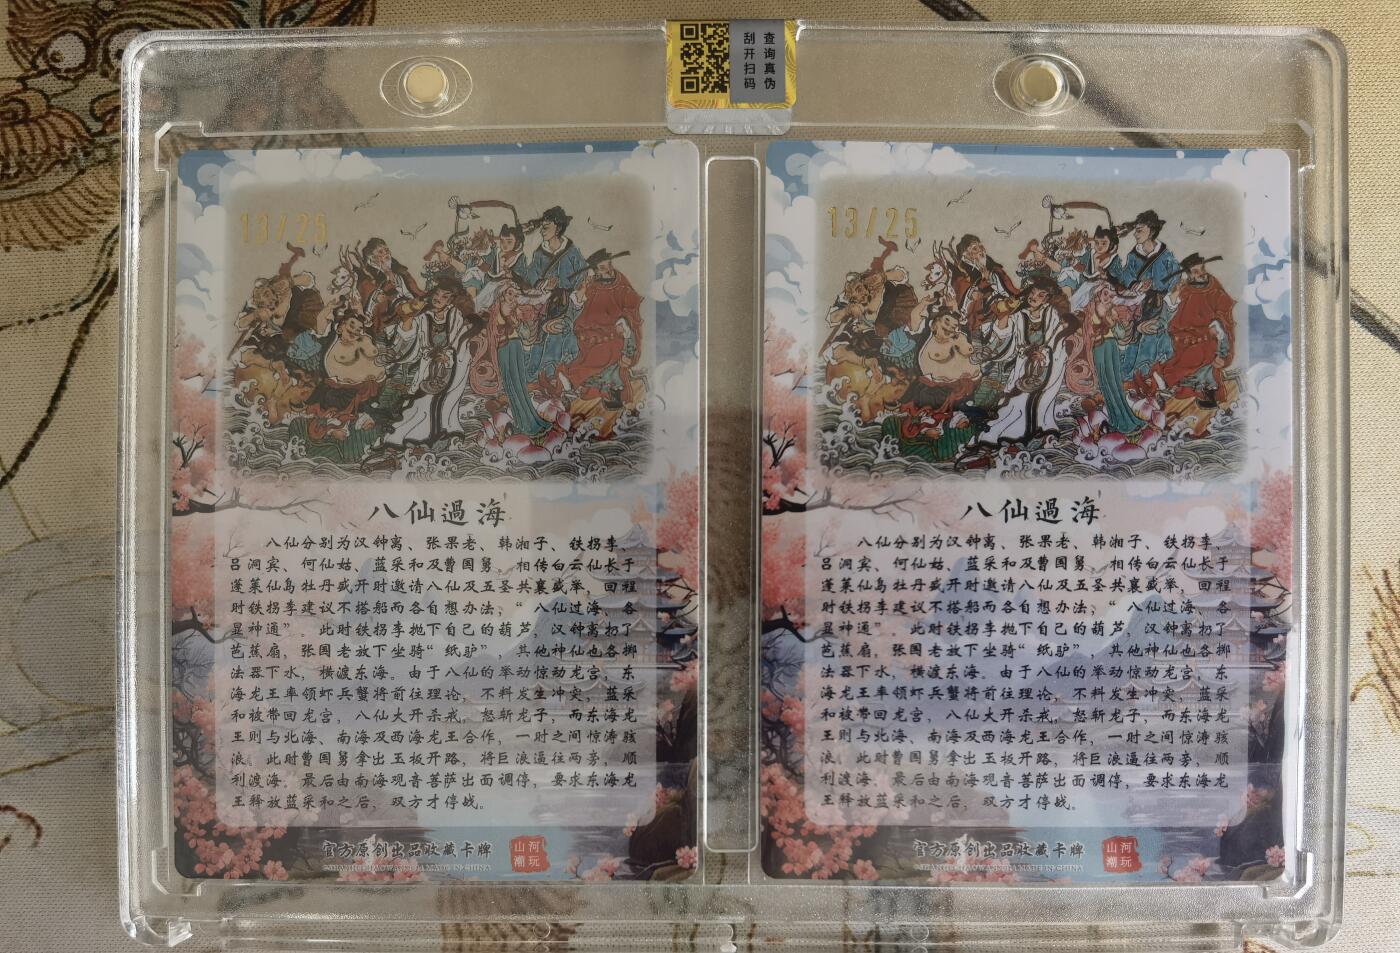 刮开扫码
查询真伪
13/25
八仙過海
八仙分别为汉钟离、张果老、韩湘子、铁拐李、
吕洞宾、何仙姑、蓝采和及曹国舅。相传白云仙长于
蓬莱仙岛牡丹盛开时邀请八仙及五圣共襄盛举，回程
时铁拐李建议不搭船而各自想办法，“八仙过海、各
显神通”。此时铁拐李抛下自己的葫芦，汉钟离扔了
芭蕉扇，张国老放下坐骑“纸驴”，其他神仙也各掷
法器下水，横渡东海。由于八仙的举动惊动龙宫，东
海龙王率领虾兵蟹将前往理论，不料发生冲突，蓝采
和被带回龙宫，八仙大开杀戒，怒斩龙子，而东海龙
王则与北海、南海及西海龙王合作，一时之间惊涛骇
浪。此时曹国舅拿出玉板开路，将巨浪逼往两旁，顺
利渡海。最后由南海观音菩萨出面调停，要求东海龙
王释放蓝采和之后，双方才停战。
官方原创出品收藏卡牌
山河
潮玩
13/25
八仙過海
八仙分别为汉钟离、张果老、韩湘子、铁拐李、
吕洞宾、何仙姑、蓝采和及曹国舅。相传白云仙长于
蓬莱仙岛牡丹盛开时邀请八仙及五圣共襄盛举，回程
时铁拐李建议不搭船而各自想办法，“八仙过海、各
显神通”。此时铁拐李抛下自己的葫芦，汉钟离扔了
芭蕉扇，张国老放下坐骑“纸驴”，其他神仙也各掷
法器下水，横渡东海。由于八仙的举动惊动龙宫，东
海龙王率领虾兵蟹将前往理论，不料发生冲突，蓝采
和被带回龙宫，八仙大开杀戒，怒斩龙子，而东海龙
王则与北海、南海及西海龙王合作，一时之间惊涛骇
浪。此时曹国舅拿出玉板开路，将巨浪逼往两旁，顺
利渡海。最后由南海观音菩萨出面调停，要求东海龙
王释放蓝采和之后，双方才停战。
官方原创出品收藏卡牌
山河
潮玩